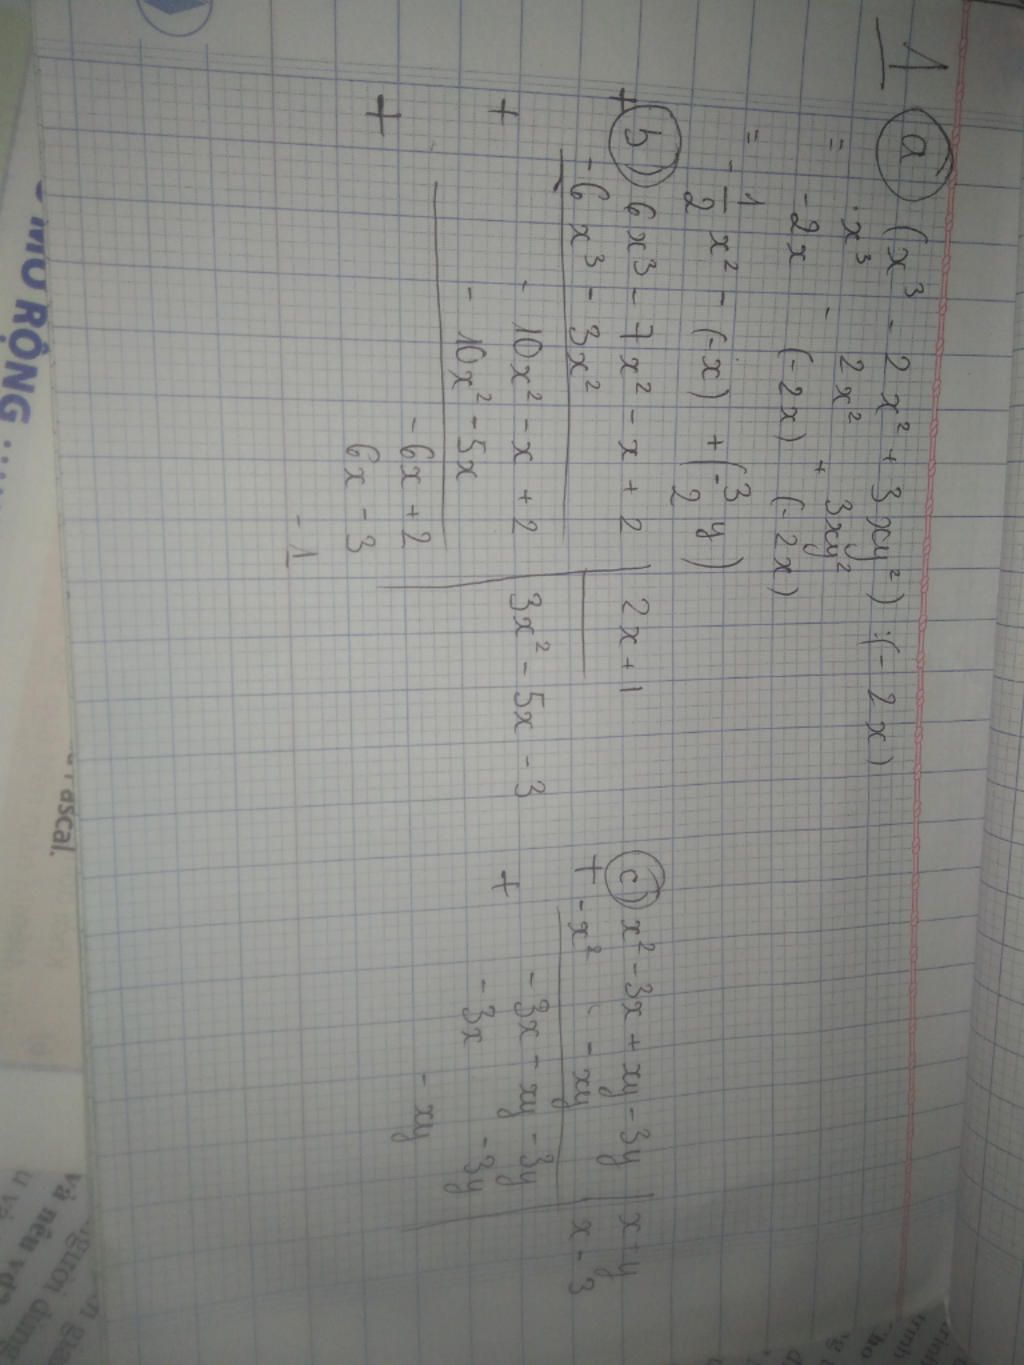 1 a (x³ - 2x² + 3xy²) : (-2x)
= x³ - 2x² + 3xy²
-2x (-2x) (-2x)
= - 1/2 x² - (-x) + (-3/2 y)
b) 6x³ - 7x² - x + 2 | 2x + 1
+ -6x³ - 3x² | 3x² - 5x - 3
- 10x² - x + 2
+ - 10x² - 5x
- 6x + 2
+ 6x - 3
- 1
c) x² - 3x + xy - 3y | x + y
+ -x² - xy | x - 3
- 3x - xy - 3y
+ - 3x - 3y
- xy
MỞ RỘNG
ascal.
và nêu